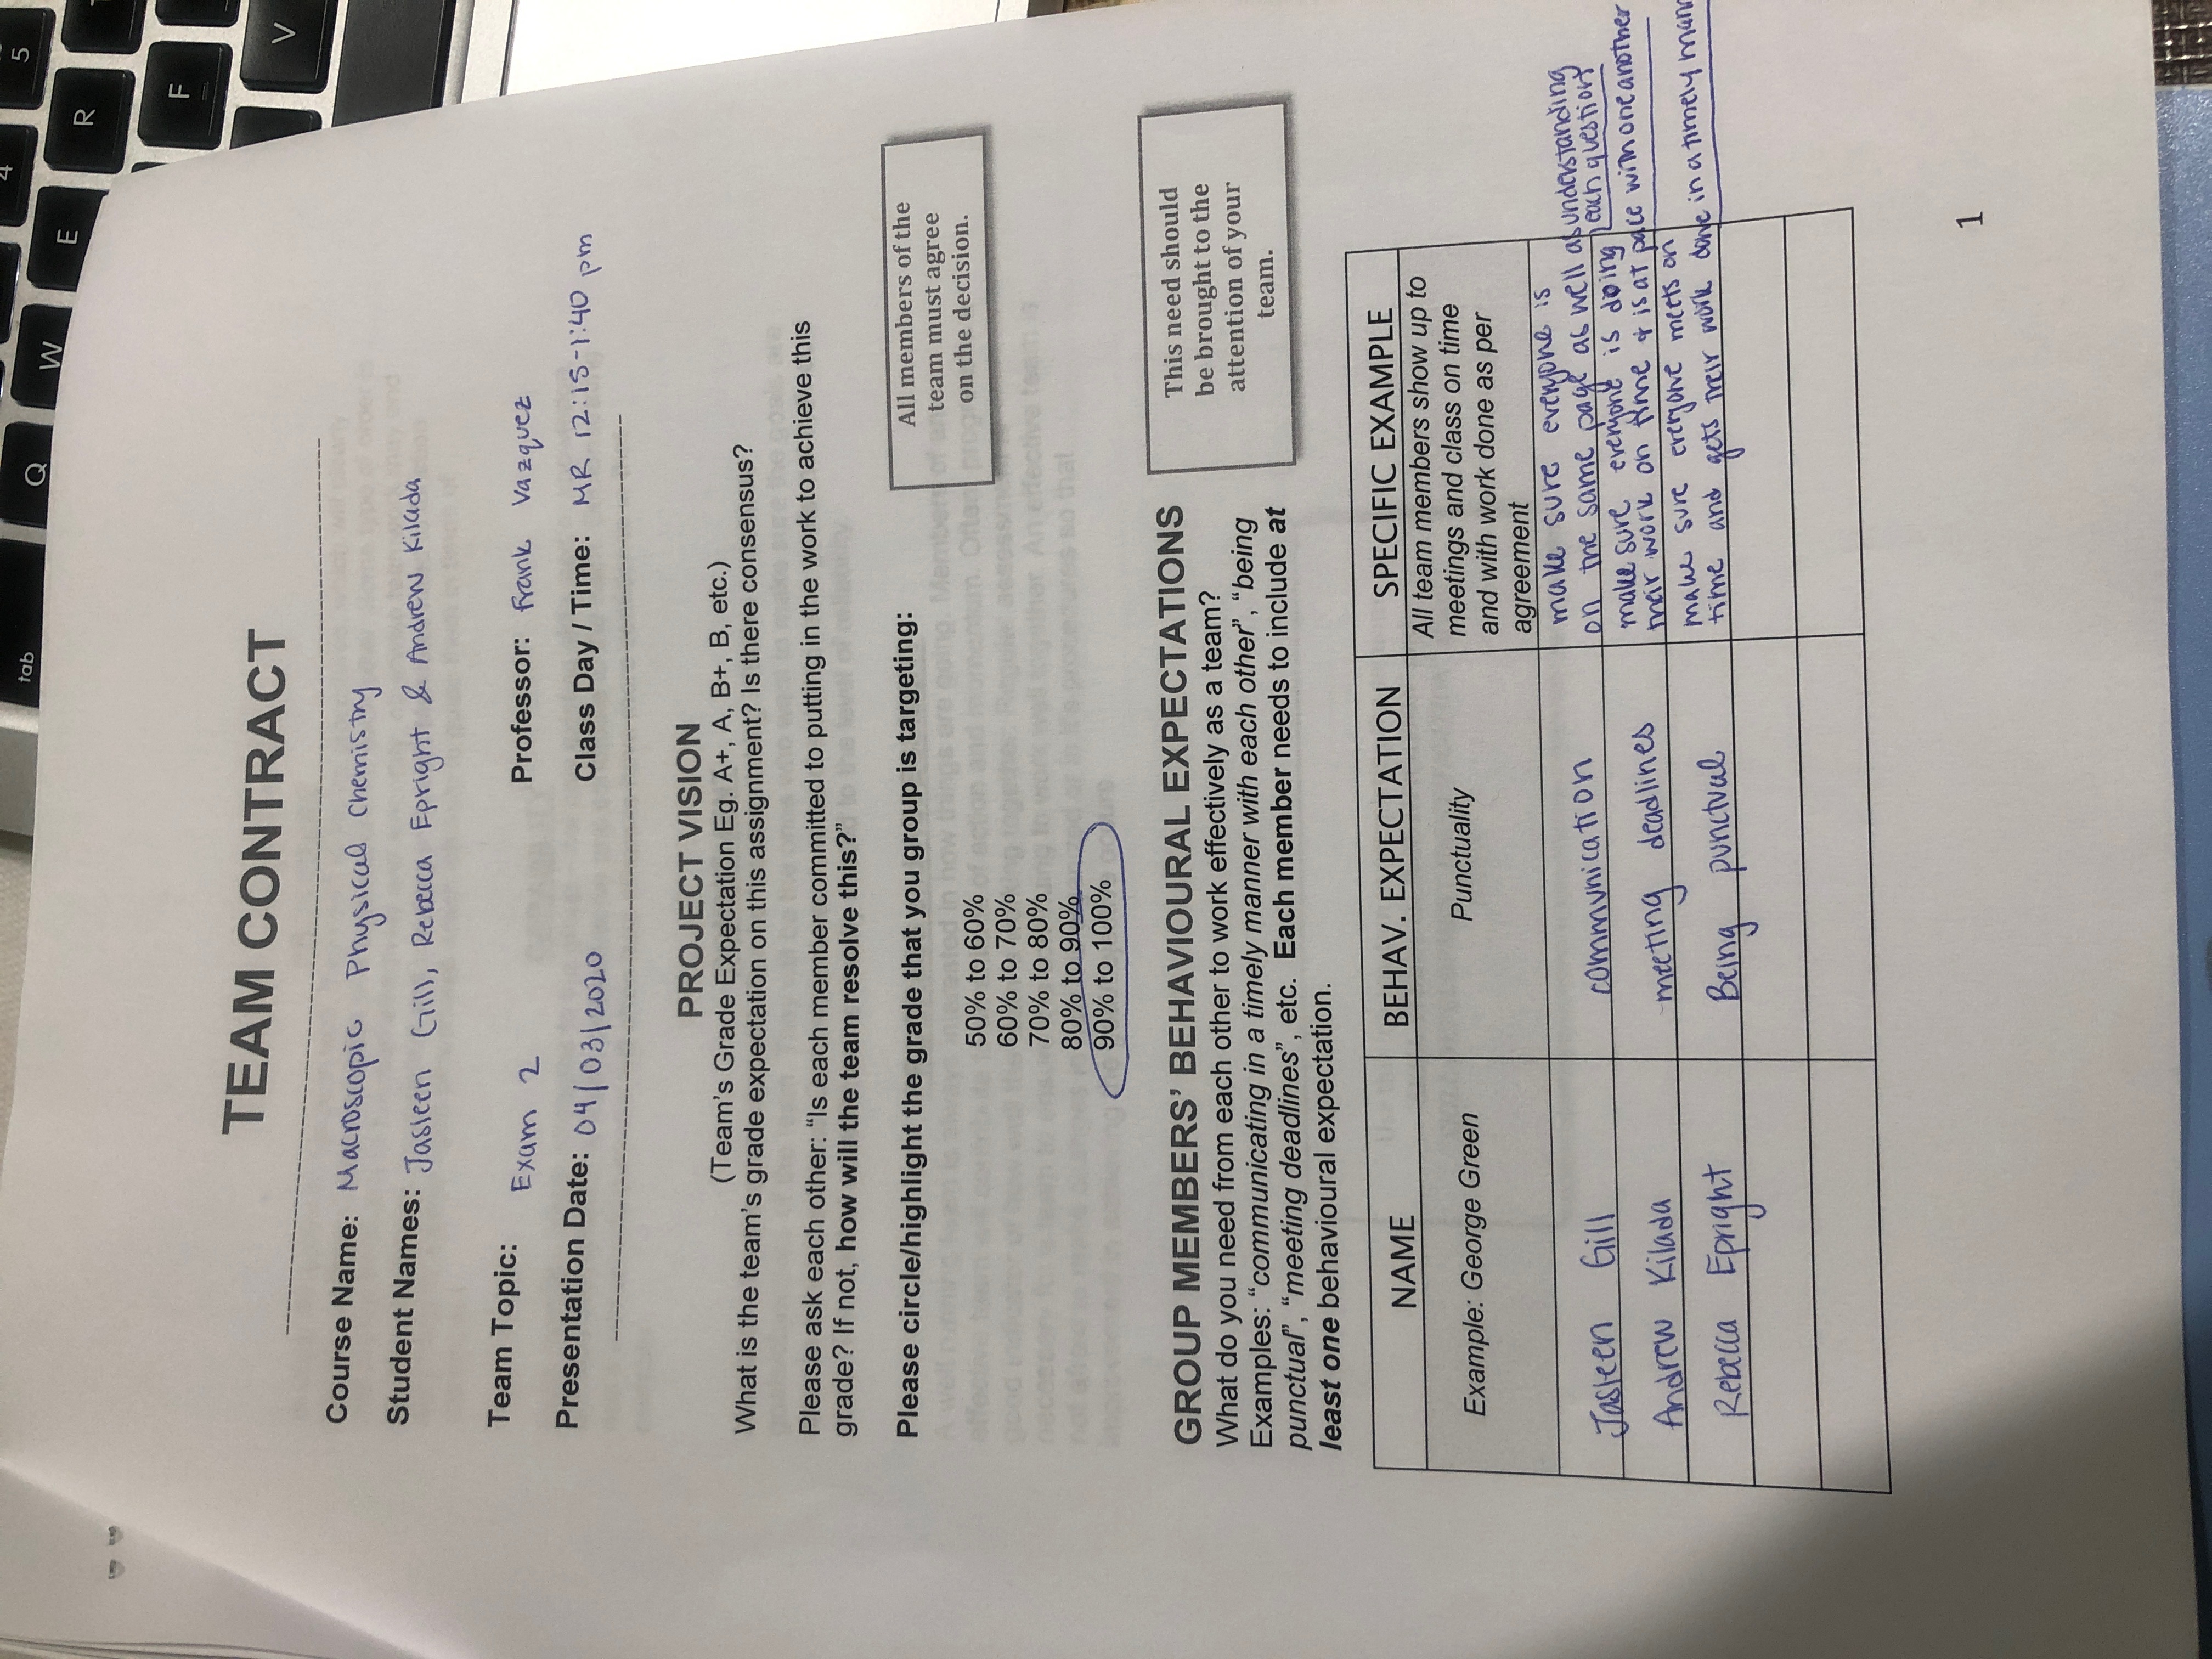 tab Q W E R 4 5
F
V
TEAM CONTRACT
Course Name: Macroscopic Physical Chemistry
Student Names: Jasleen Gill, Rebecca Epright & Andrew Kilada
Team Topic: Exam 2
Professor: Frank Vazquez
Presentation Date: 04/03/2020
Class Day / Time: MR 12:15-1:40 pm
PROJECT VISION
(Team's Grade Expectation Eg. A+, A, B+, B, etc.)
What is the team's grade expectation on this assignment? Is there consensus?
Please ask each other: “Is each member committed to putting in the work to achieve this
grade? If not, how will the team resolve this?”
Please circle/highlight the grade that you group is targeting:
All members of the
team must agree
on the decision.
50% to 60%
60% to 70%
70% to 80%
80% to 90%
90% to 100%
GROUP MEMBERS’ BEHAVIOURAL EXPECTATIONS
What do you need from each other to work effectively as a team?
Examples: “communicating in a timely manner with each other”, “being
punctual”, “meeting deadlines”, etc. Each member needs to include at
least one behavioural expectation.
This need should
be brought to the
attention of your
team.
NAME
BEHAV. EXPECTATION
SPECIFIC EXAMPLE
Example: George Green
Punctuality
All team members show up to
meetings and class on time
and with work done as per
agreement
Jasleen Gill
communication
make sure everyone is
on the same page as well as understanding
each question
Andrew Kilada
meeting deadlines
make sure everyone is doing
their work on time & is at pace with one another
Rebecca Epright
Being punctual
make sure everyone meets on
time and gets their work done in a timely
1